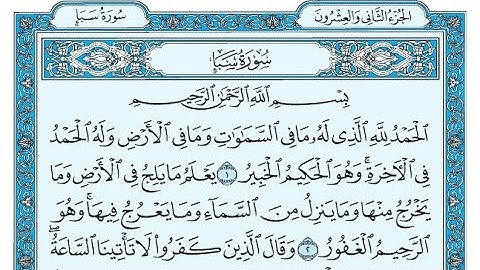 سُورَةُ سَبَإٍ
الجُزْءُ الثَّانِي وَالعِشْرُونَ
سُورَةُ سَبَإٍ
بِسْمِ ٱللَّهِ ٱلرَّحْمَٰنِ ٱلرَّحِيمِ
ٱلْحَمْدُ لِلَّهِ ٱلَّذِى لَهُۥ مَا فِى ٱلسَّمَٰوَٰتِ وَمَا فِى ٱلْأَرْضِ وَلَهُ ٱلْحَمْدُ
فِى ٱلْأَخِرَةِ ۚ وَهُوَ ٱلْحَكِيمُ ٱلْخَبِيرُ ١ يَعْلَمُ مَا يَلِجُ فِى ٱلْأَرْضِ وَمَا
يَخْرُجُ مِنْهَا وَمَا يَنزِلُ مِنَ ٱلسَّمَآءِ وَمَا يَعْرُجُ فِيهَا ۚ وَهُوَ
ٱلرَّحِيمُ ٱلْغَفُورُ ٢ وَقَالَ ٱلَّذِينَ كَفَرُوا۟ لَا تَأْتِينَا ٱلسَّاعَةُ ۖ